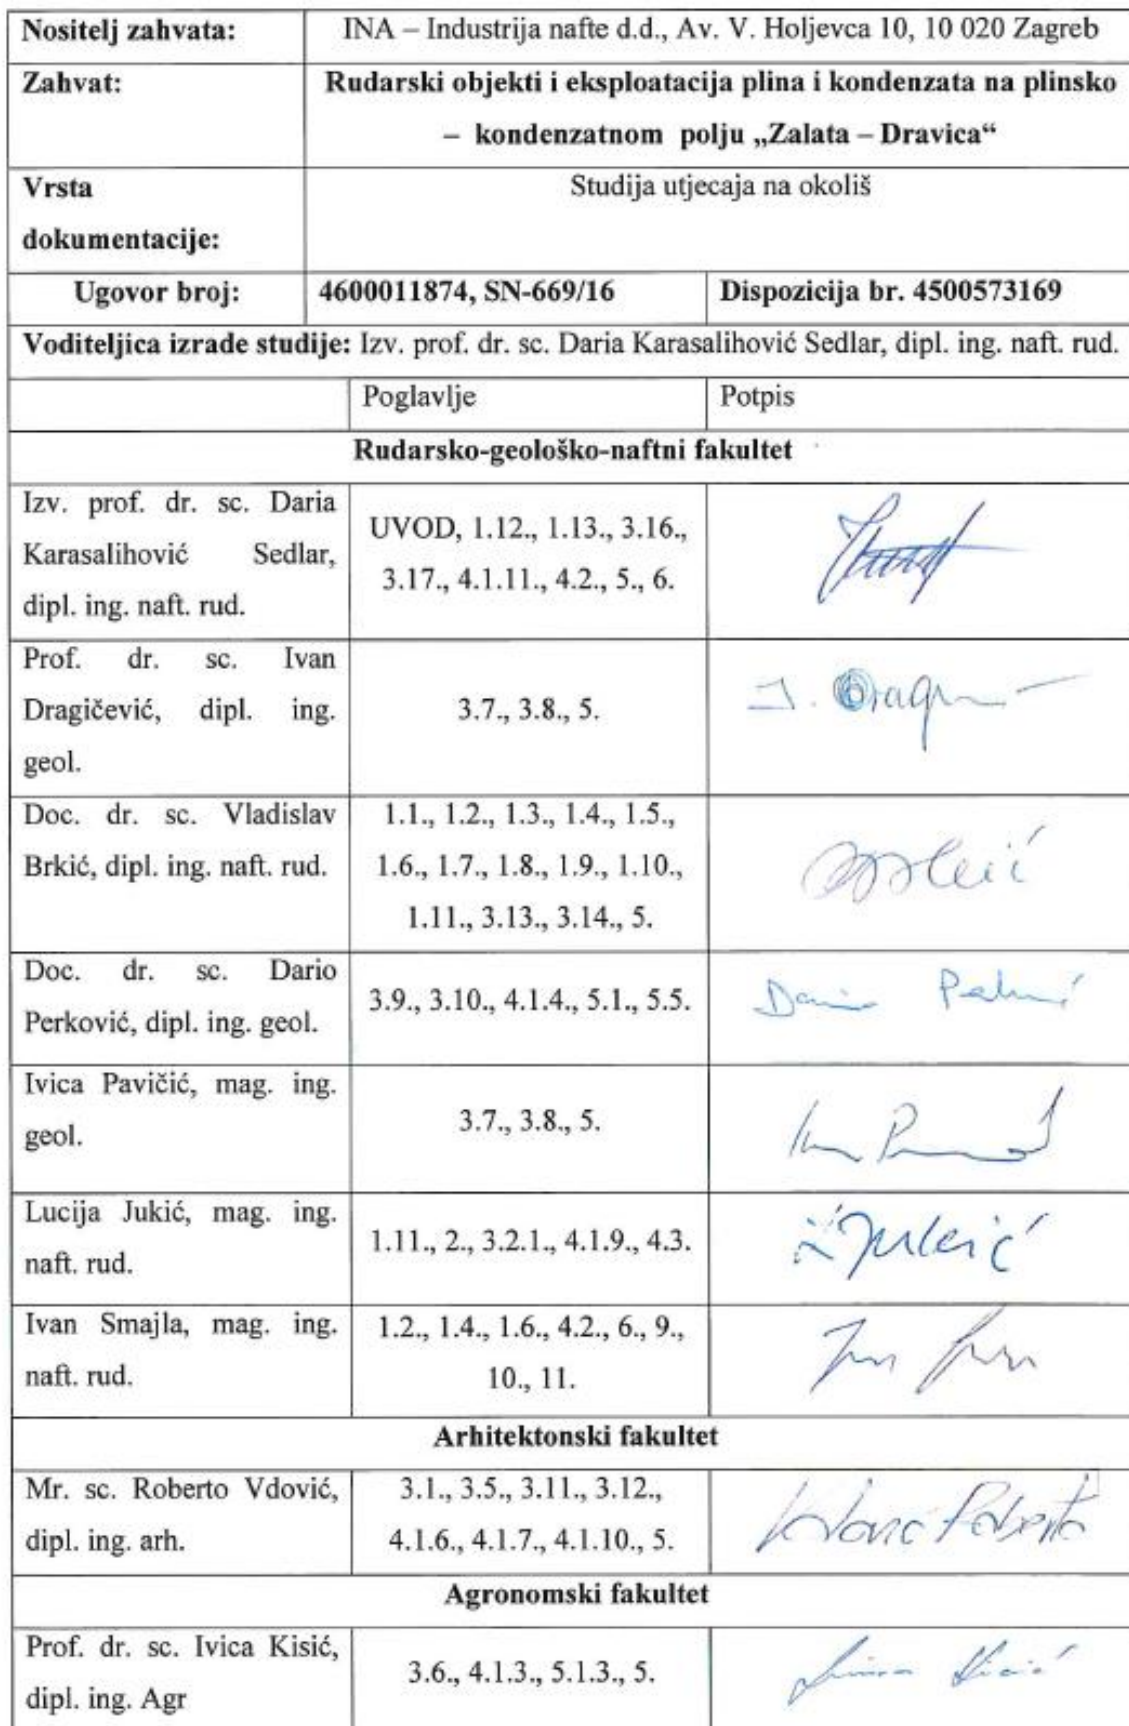 Nositelj zahvata: INA – Industrija nafte d.d., Av. V. Holjevca 10, 10 020 Zagreb
Zahvat: Rudarski objekti i eksploatacija plina i kondenzata na plinsko
– kondenzatnom polju „Zalata – Dravica“
Vrsta
dokumentacije:
Studija utjecaja na okoliš
Ugovor broj: 4600011874, SN-669/16 Dispozicija br. 4500573169
Voditeljica izrade studije: Izv. prof. dr. sc. Daria Karasalihović Sedlar, dipl. ing. naft. rud.
Poglavlje Potpis
Rudarsko-geološko-naftni fakultet
Izv. prof. dr. sc. Daria
Karasalihović Sedlar,
dipl. ing. naft. rud.
UVOD, 1.12., 1.13., 3.16.,
3.17., 4.1.11., 4.2., 5., 6.
Prof. dr. sc. Ivan
Dragičević, dipl. ing.
geol.
3.7., 3.8., 5.
Doc. dr. sc. Vladislav
Brkić, dipl. ing. naft. rud.
1.1., 1.2., 1.3., 1.4., 1.5.,
1.6., 1.7., 1.8., 1.9., 1.10.,
1.11., 3.13., 3.14., 5.
Doc. dr. sc. Dario
Perković, dipl. ing. geol.
3.9., 3.10., 4.1.4., 5.1., 5.5.
Ivica Pavičić, mag. ing.
geol.
3.7., 3.8., 5.
Lucija Jukić, mag. ing.
naft. rud.
1.11., 2., 3.2.1., 4.1.9., 4.3.
Ivan Smajla, mag. ing.
naft. rud.
1.2., 1.4., 1.6., 4.2., 6., 9.,
10., 11.
Arhitektonski fakultet
Mr. sc. Roberto Vdović,
dipl. ing. arh.
3.1., 3.5., 3.11., 3.12.,
4.1.6., 4.1.7., 4.1.10., 5.
Agronomski fakultet
Prof. dr. sc. Ivica Kisić,
dipl. ing. Agr
3.6., 4.1.3., 5.1.3., 5.